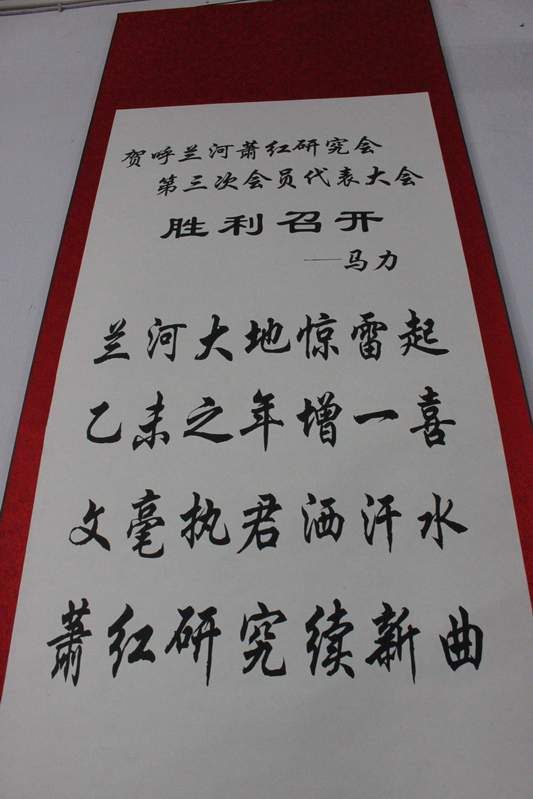 贺呼兰河萧红研究会
第三次会员代表大会
胜利召开
——马力
兰河大地惊雷起
乙未之年增一喜
文毫执君洒汗水
萧红研究续新曲